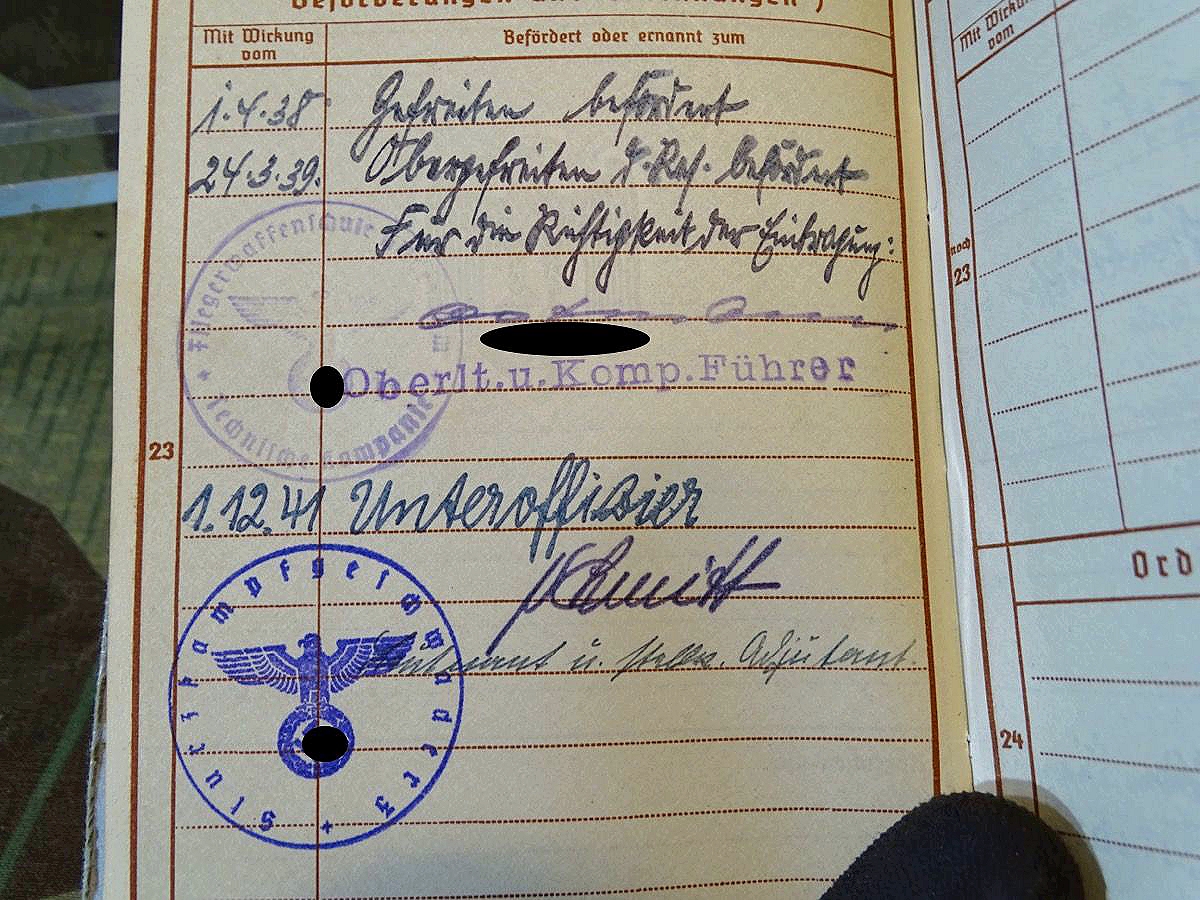 Mit Wirkung vom
Befördert oder ernannt zum
1.4.38 Gefreiten befördert
24.3.39. Obergefreiten d. Res. befördert
Für die Richtigkeit der Eintragung:
Fliegerwaffenschule
Technische Kompanie
Oberlt.u.Komp.Führer
23
1.12.41 Unteroffizier
Schmitt
Leutnant u. stellv. Adjutant.
Sturzkampfgeschwader 3
Mit Wirkung vom
noch
23
Ord
24